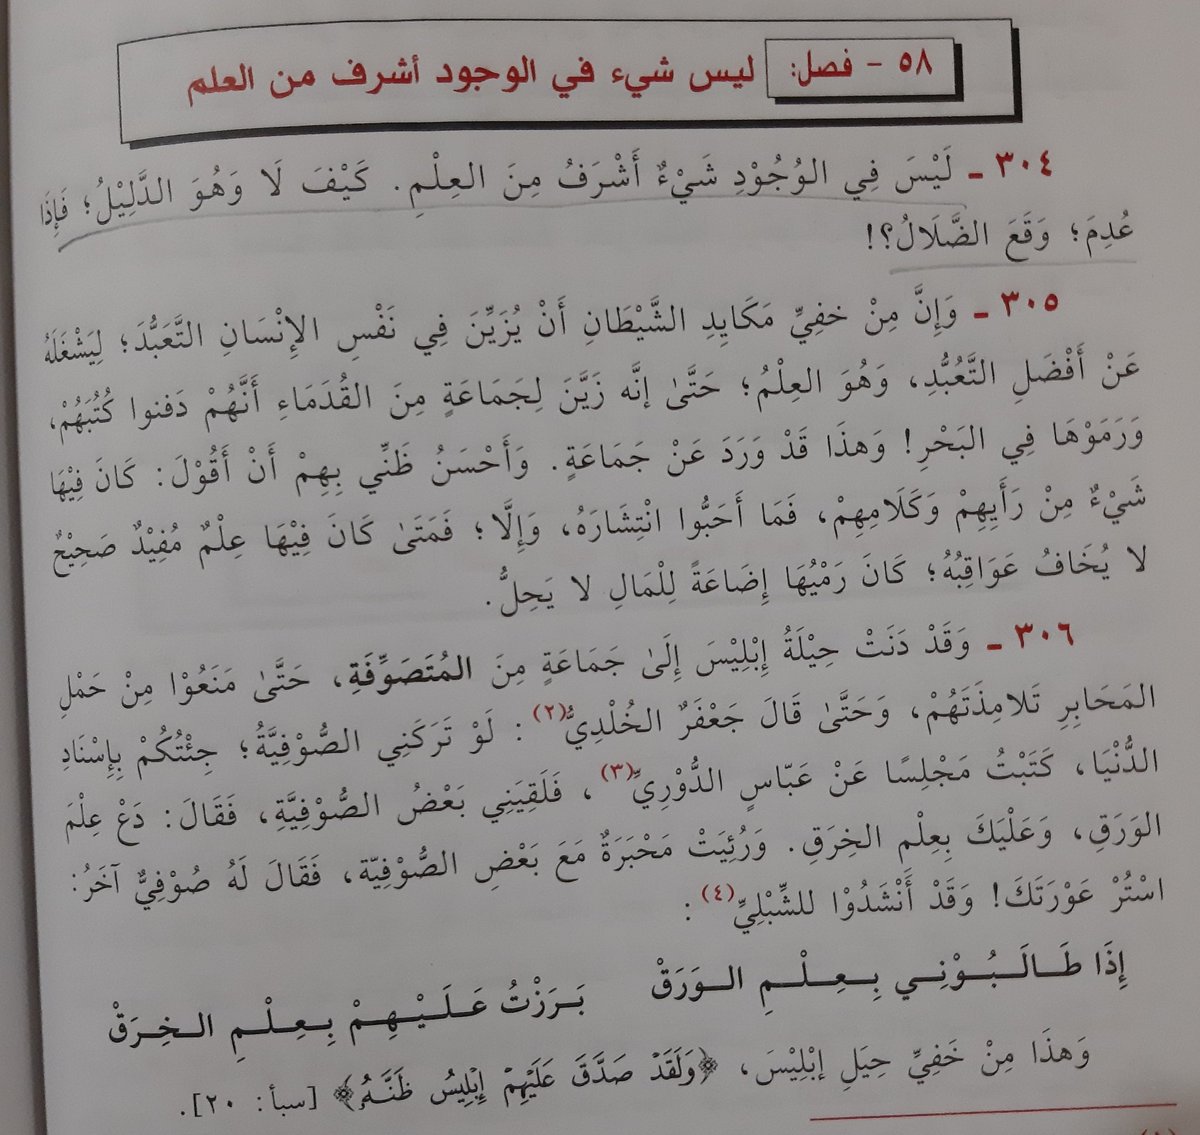 ٥٨ - فصل: ليس شيء في الوجود أشرف من العلم
٣٠٤ ـ لَيْسَ فِي الوُجُوْدِ شَيْءٌ أَشْرَفُ مِنَ العِلْمِ. كَيْفَ لَا وَهُوَ الدَّلِيْلُ؛ فَإِذَا
عُدِمَ؛ وَقَعَ الضَّلَالُ؟!
٣٠٥ ـ وَإِنَّ مِنْ خفِيِّ مَكَايِدِ الشَّيْطَانِ أَنْ يُزَيِّنَ فِي نَفْسِ الإِنْسَانِ التَّعَبُّدَ؛ لِيَشْغَلَهُ
عَنْ أَفْضَلِ التَّعُبُّدِ، وَهُوَ العِلْمُ؛ حَتَّىٰ إنَّه زَيَّنَ لِجَمَاعَةٍ مِنَ القُدَمَاءِ أَنَّهُمْ دَفنوا كُتُبَهُمْ،
وَرَمَوْهَا فِي البَحْرِ! وَهذَا قَدْ وَرَدَ عَنْ جَمَاعَةٍ. وَأَحْسَنُ ظَنِّي بِهِمْ أَنْ أَقُوْلَ: كَانَ فِيْهَا
شَيْءٌ مِنْ رَأَيِهِمْ وَكَلَامِهِمْ، فَمَا أَحَبُّوا انْتِشَارَهُ، وَإِلَّا؛ فَمَتَىٰ كَانَ فِيْهَا عِلْمٌ مُفِيْدٌ صَحِيْحٌ
لا يُخَافُ عَوَاقِبُهُ؛ كَانَ رَمْيُهَا إِضَاعَةً لِلْمَالِ لا يَحِلُّ.
٣٠٦ ـ وَقَدْ دَنَتْ حِيْلَةُ إِبْلِيْسَ إِلَىٰ جَمَاعَةٍ مِنَ المُتَصَوِّفَةِ، حَتَّىٰ مَنَعُوْا مِنْ حَمْلِ
المَحَابِرِ تَلامِذَتَهُمْ، وَحَتَّىٰ قَالَ جَعْفَرٌ الخُلْدِيُّ(٢): لَوْ تَرَكَنِي الصُّوْفِيَّةُ؛ جِئْتُكُمْ بِإِسْنَادِ
الدُّنْيَا، كَتَبْتُ مَجْلِسًا عَنْ عَبّاسٍ الدُّوْرِيِّ(٣)، فَلَقِيَنِي بَعْضُ الصُّوْفِيَّةِ، فَقَالَ: دَعْ عِلْمَ
الوَرَقِ، وَعَلْيَكَ بِعِلْمِ الخِرَقِ. وَرُئِيَتْ مَحْبَرَةٌ مَعَ بَعْضِ الصُّوْفِيّة، فَقَالَ لَهُ صُوْفِيٌّ آخَرُ:
اسْتُرْ عَوْرَتَكَ! وَقَدْ أَنْشَدُوْا للشِّبْلِيِّ(٤):
إِذَا طَـالَـبُـوْنِـي بِـعِـلْـمِ الـوَرَقْ بَـرَزْتُ عَـلَـيْـهِـمْ بِـعِـلْـمِ الـخِـرَقْ
وَهذَا مِنْ خَفِيِّ حِيَلِ إبْلِيْسَ، ﴿وَلَقَدْ صَدَّقَ عَلَيْهِمْ إِبْلِيسُ ظَنَّهُ﴾ [سبأ: ٢٠].